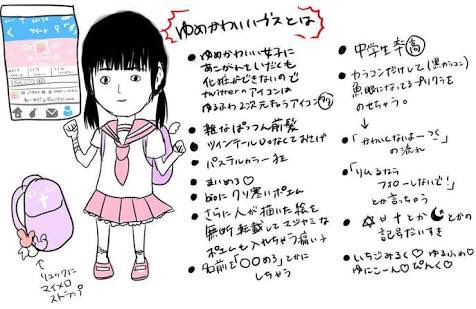 ツイート
ゆめかわいいブスとは
・ゆめかわいい女子に
あこがれをいだくも
化粧ができないので
twitterのアイコンは
ゆるふわ2次元キャラアイコン
・雑なぱっつん前髪
・ツインテールじゃなくておさげ
・パステルカラー狂
・まいめろ♡
・bioにクソ寒いポエム
・さらに人が描いた絵を
無断転載してスジャミな
ポエムも入れちゃう痛い子
・名前を「〇〇める」とかに
しちゃう
・中学生率高
・カラコンだけして(黒カラコン)
魚眼になってるプリクラを
のせちゃう。
↓
「かわいくないよーっ」
の流れ
・「りむるなら
フォローしないで!」
とか言っちゃう
・✡ ♉ ✝ とか ☾ とかの
記号だいすき
・いちごみるく♡ゆるふわ♡
ゆにこーん♡ぴんく♡
↑
リュックに
マイメロ
ストラップ